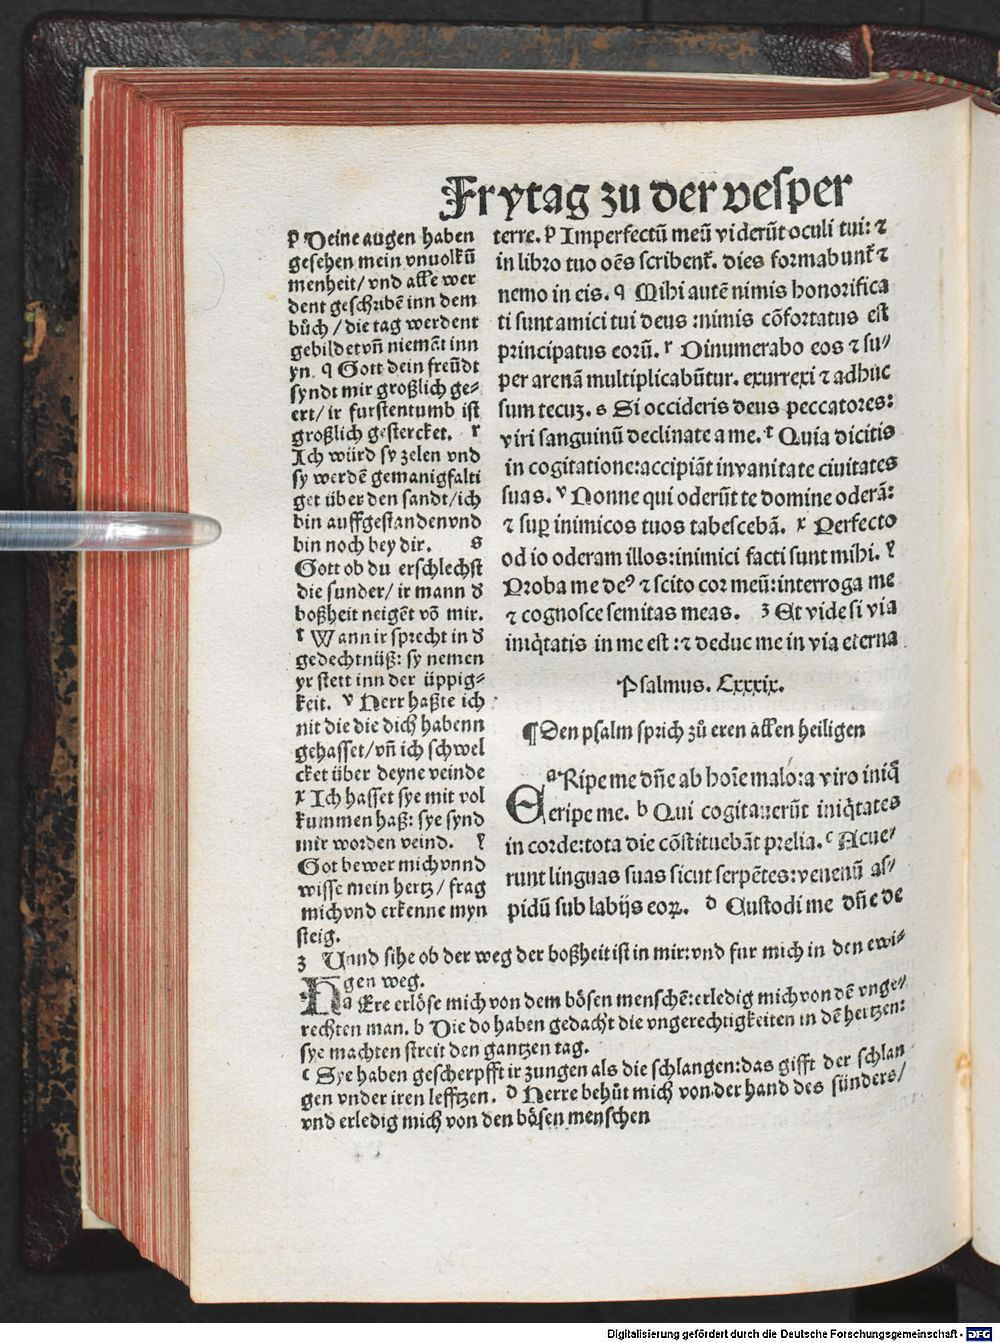 Frytag zu der vesper
p Deine augen haben
gesehen mein vnuolkū
menheit/ vnd alle wer
dent geschribē inn dem
bůch / die tag werdent
gebildet vñ niemēt inn
yn. q Gott dein freūdt
syndt mir großlich ge⸗
ert/ ir furstentumb ist
großlich gestercket. r
Ich würd sy zelen vnd
sy werdē gemanigfalti
get über den sandt/ich
bin auffgestanden vnd
bin noch bey dir. s
Gott ob du erschlechst
die sunder/ ir mann d̄
boßheit neigēt vō mir.
t Wann ir sprecht in d̄
gedechtnüß: sy nemen
yr stett inn der üppig⸗
keit. v Herr haßte ich
nit die die dich habenn
gehasset/vñ ich schwel
cket über deyne veinde
x Ich hasset sye mit vol
kummen haß: sye synd
mir worden veind. y
Got bewer mich vnnd
wisse mein hertz/ frag
mich vnd erkenne myn
steig.
z Unnd sihe ob der weg der boßheit ist in mir: vnd fur mich in den ewi⸗
gen weg.
terre. p Imperfectū meū viderūt oculi tui: ⁊
in libro tuo oēs scribent̄. dies formabunt̄ ⁊
nemo in eis. q Mihi autē nimis honorifica
ti sunt amici tui deus :nimis cōfortatus est
principatus eorū. r Dinumerabo eos ⁊ su⸗
per arenā multiplicabūtur. exurrexi ⁊ adhuc
sum tecuꝫ. s Si occideris deus peccatores:
viri sanguinū declinate a me. t Quia dicitis
in cogitatione: accipiāt in vanitate ciuitates
suas. v Nonne qui oderūt te domine oderā:
⁊ suꝑ inimicos tuos tabescebā. x Perfecto
od io oderam illos: inimici facti sunt mihi. y
Proba me deꝰ ⁊ scito cor meū: interroga me
⁊ cognosce semitas meas. z Et vide si via
iniq̄tatis in me est :⁊ deduc me in via eterna
Psalmus. Cxxxix.
¶Den psalm sprich zů eren allen heiligen
a Eripe me dñe ab hoīe malo: a viro iniq̄
eripe me. b Qui cogitauerūt iniq̄tates
in corde: tota die cōstituebāt prelia. c Acue⸗
runt linguas suas sicut serpētes: venenū as⸗
pidū sub labijs eoꝝ. d Custodi me dñe de
a Here erlöse mich von dem bösen menschē: erledig mich von dē vnge⸗
rechten man. b Die do haben gedacht die vngerechtigkeiten in dē hertzen:
sye machten streit den gantzen tag.
c Sye haben gescherpfft ir zungen als die schlangen: das gifft der schlan
gen vnder iren lefftzen. d Herre behüt mich von der hand des sünders/
vnd erledig mich von den bösen menschen
Digitalisierung gefördert durch die Deutsche Forschungsgemeinschaft - DFG